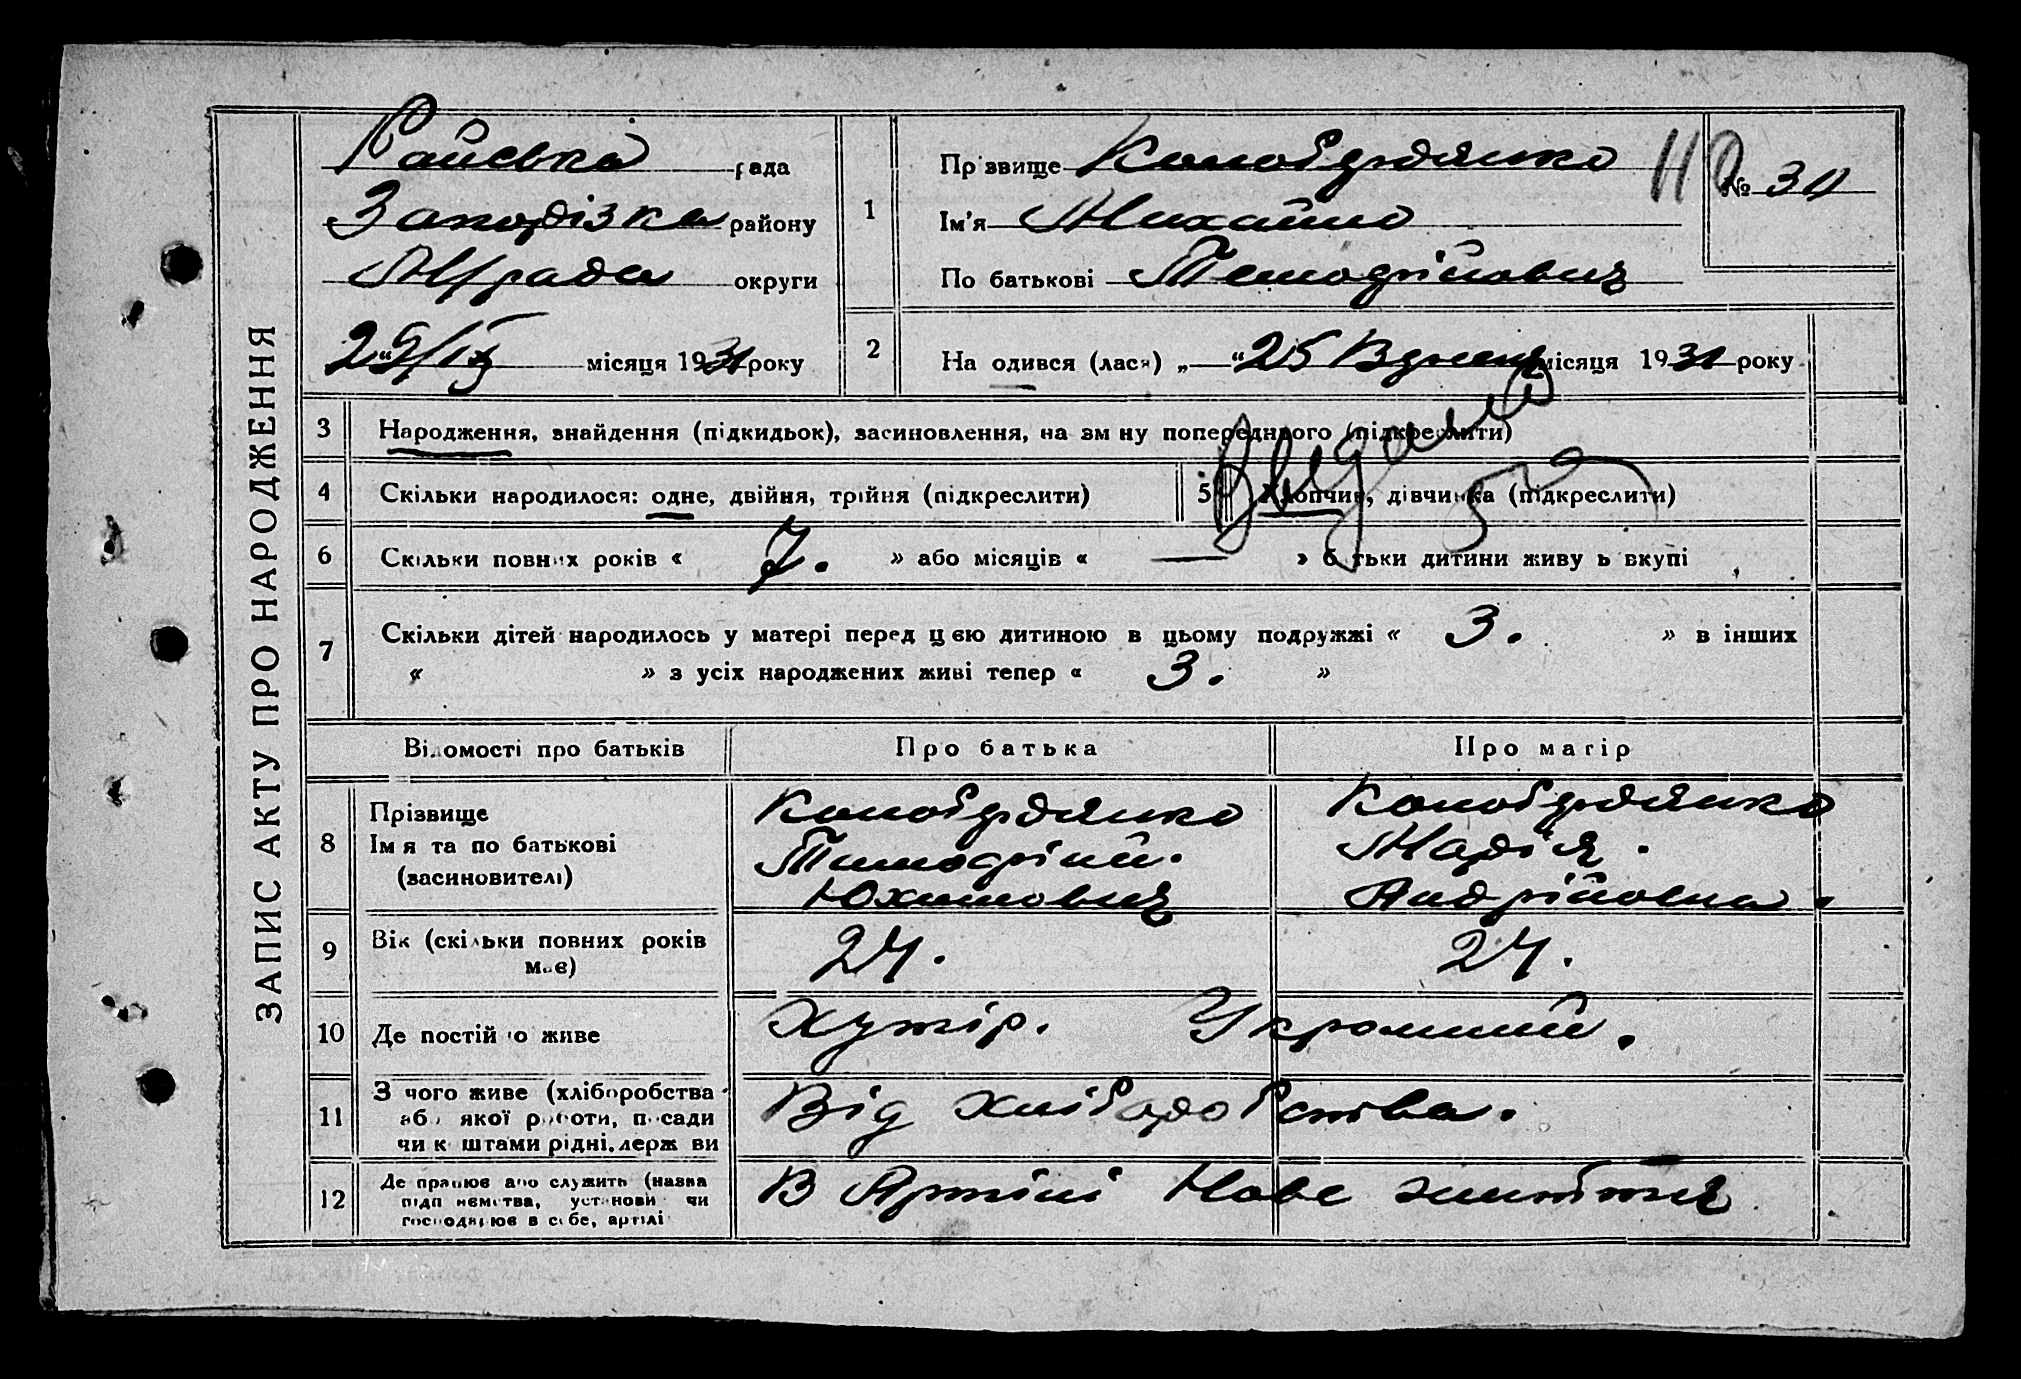 ЗАПИС АКТУ ПРО НАРОДЖЕННЯ
Райська рада
району
округи
29/IX місяця 1931 року
1
Прзвище
Ім'я Михайло
По батькові Тимофійович
№
2
На одився (лася) „ “ 25 місяця 1931 року
3
Народження, знайдення (підкидьок), засиновлення, на зм ну попереднього (підкреслити)
4
Скільки народилося: одне, двійня, трійня (підкреслити)
5
Хлопчик, дівчинка (підкреслити)
6
Скільки повних років « 7. » або місяців « — » б тьки дитини живу ь вкупі
7
Скільки дітей народилось у матері перед цією дитиною в цьому подружжі « 3. » в інших
« » з усіх народжених живі тепер « 3. »
Відомості про батьків
Про батька
Про матір
8
Прізвище
Імя та по батькові
(засиновителі)
Тимофій.
Юхимович
Марія.
Андрійовна.
9
Вік (скільки повних років має)
27.
27.
10
Де постій о живе
Хутір.
11
З чого живе (хліборобства
або якої роботи, посади
чи к штами рідні, держ ви
Від хліборобства.
12
Де працює або служить (назва
підп иємства, установи чи
господарює в себе, артілі
В Артілі Нове життя